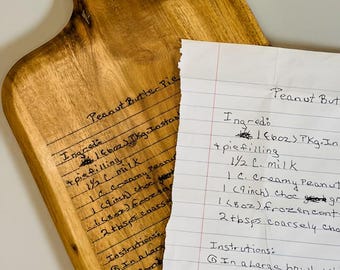 Peanut Butter Pie
Ingredi
1 (6oz) Pkg. Instan
+ piefilling
1½ C. milk
1 C. creamy Peanu
1 (9inch) choc
1 (8oz) frozen cont
2 tbsps coarsely
Instructions:
In a Large b
Peanut Butt
Ingredi:
1 (6oz) Pkg. In
+ piefilling
1½ C. milk
1 C. creamy Peanut
1 (9inch) choc grah
1 (8oz) frozen cont
2 tbsps coarsely cho
Instrutions:
In a Large bowl